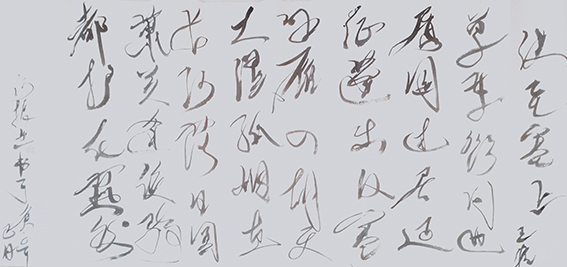 使至塞上 王维
单车欲问边
属国过居延
征蓬出汉塞
归雁入胡天
大漠孤烟直
长河落日圆
萧关逢候骑
都护在燕然